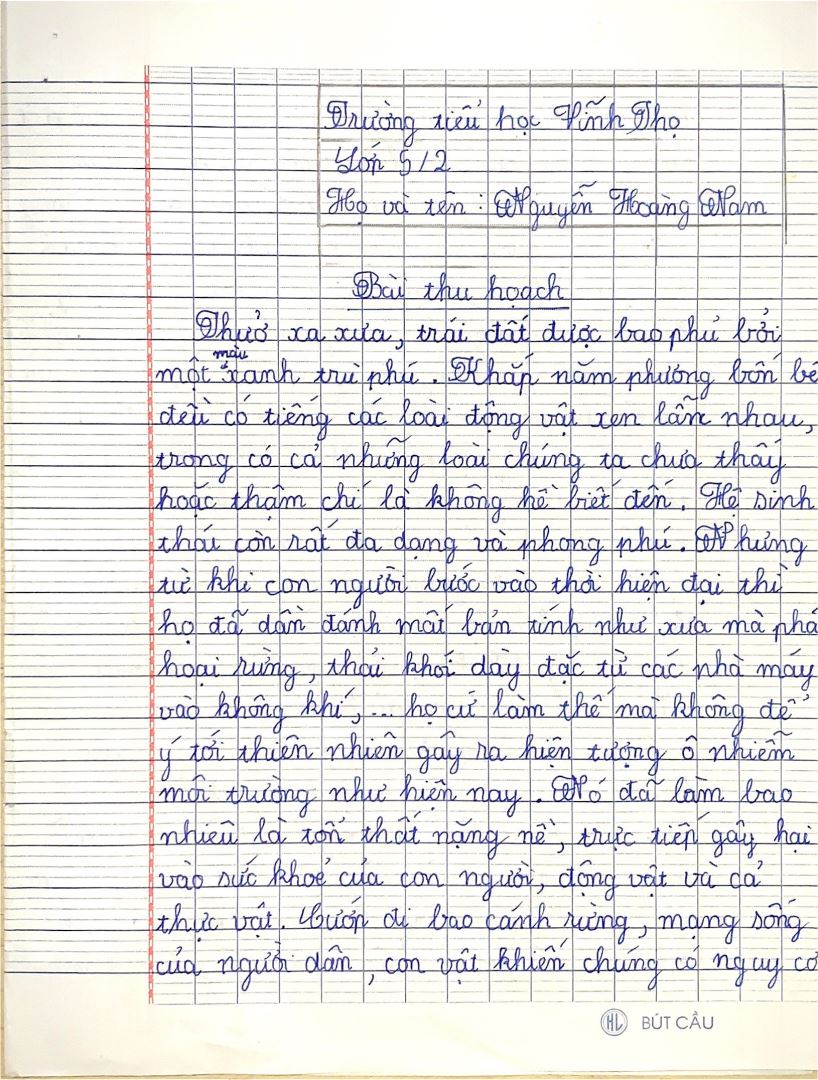 Trường tiểu học Vĩnh Thọ
Lớp 5/2
Họ và tên : Nguyễn Hoàng Nam
Bài thu hoạch
Thuở xa xưa, trái đất được bao phủ bởi
màu
một xanh trù phú. Khắp năm phương bốn bể
đều có tiếng các loài động vật xen lẫn nhau,
trong có cả những loài chúng ta chưa thấy
hoặc thậm chí là không hề biết đến. Hệ sinh
thái còn rất đa dạng và phong phú. Nhưng
từ khi con người bước vào thời hiện đại thì
họ đã dần đánh mất bản tính như xưa mà phá
hoại rừng, thải khói dày đặc từ các nhà máy
vào không khí,... họ cứ làm thế mà không để
ý tới thiên nhiên gây ra hiện tượng ô nhiễm
môi trường như hiện nay. Nó đã làm bao
nhiêu là tổn thất nặng nề, trực tiếp gây hại
vào sức khoẻ của con người, động vật và cả
thực vật. Cướp đi bao cánh rừng, mạng sống
của người dân, con vật khiến chúng có nguy cơ
HL BÚT CẦU